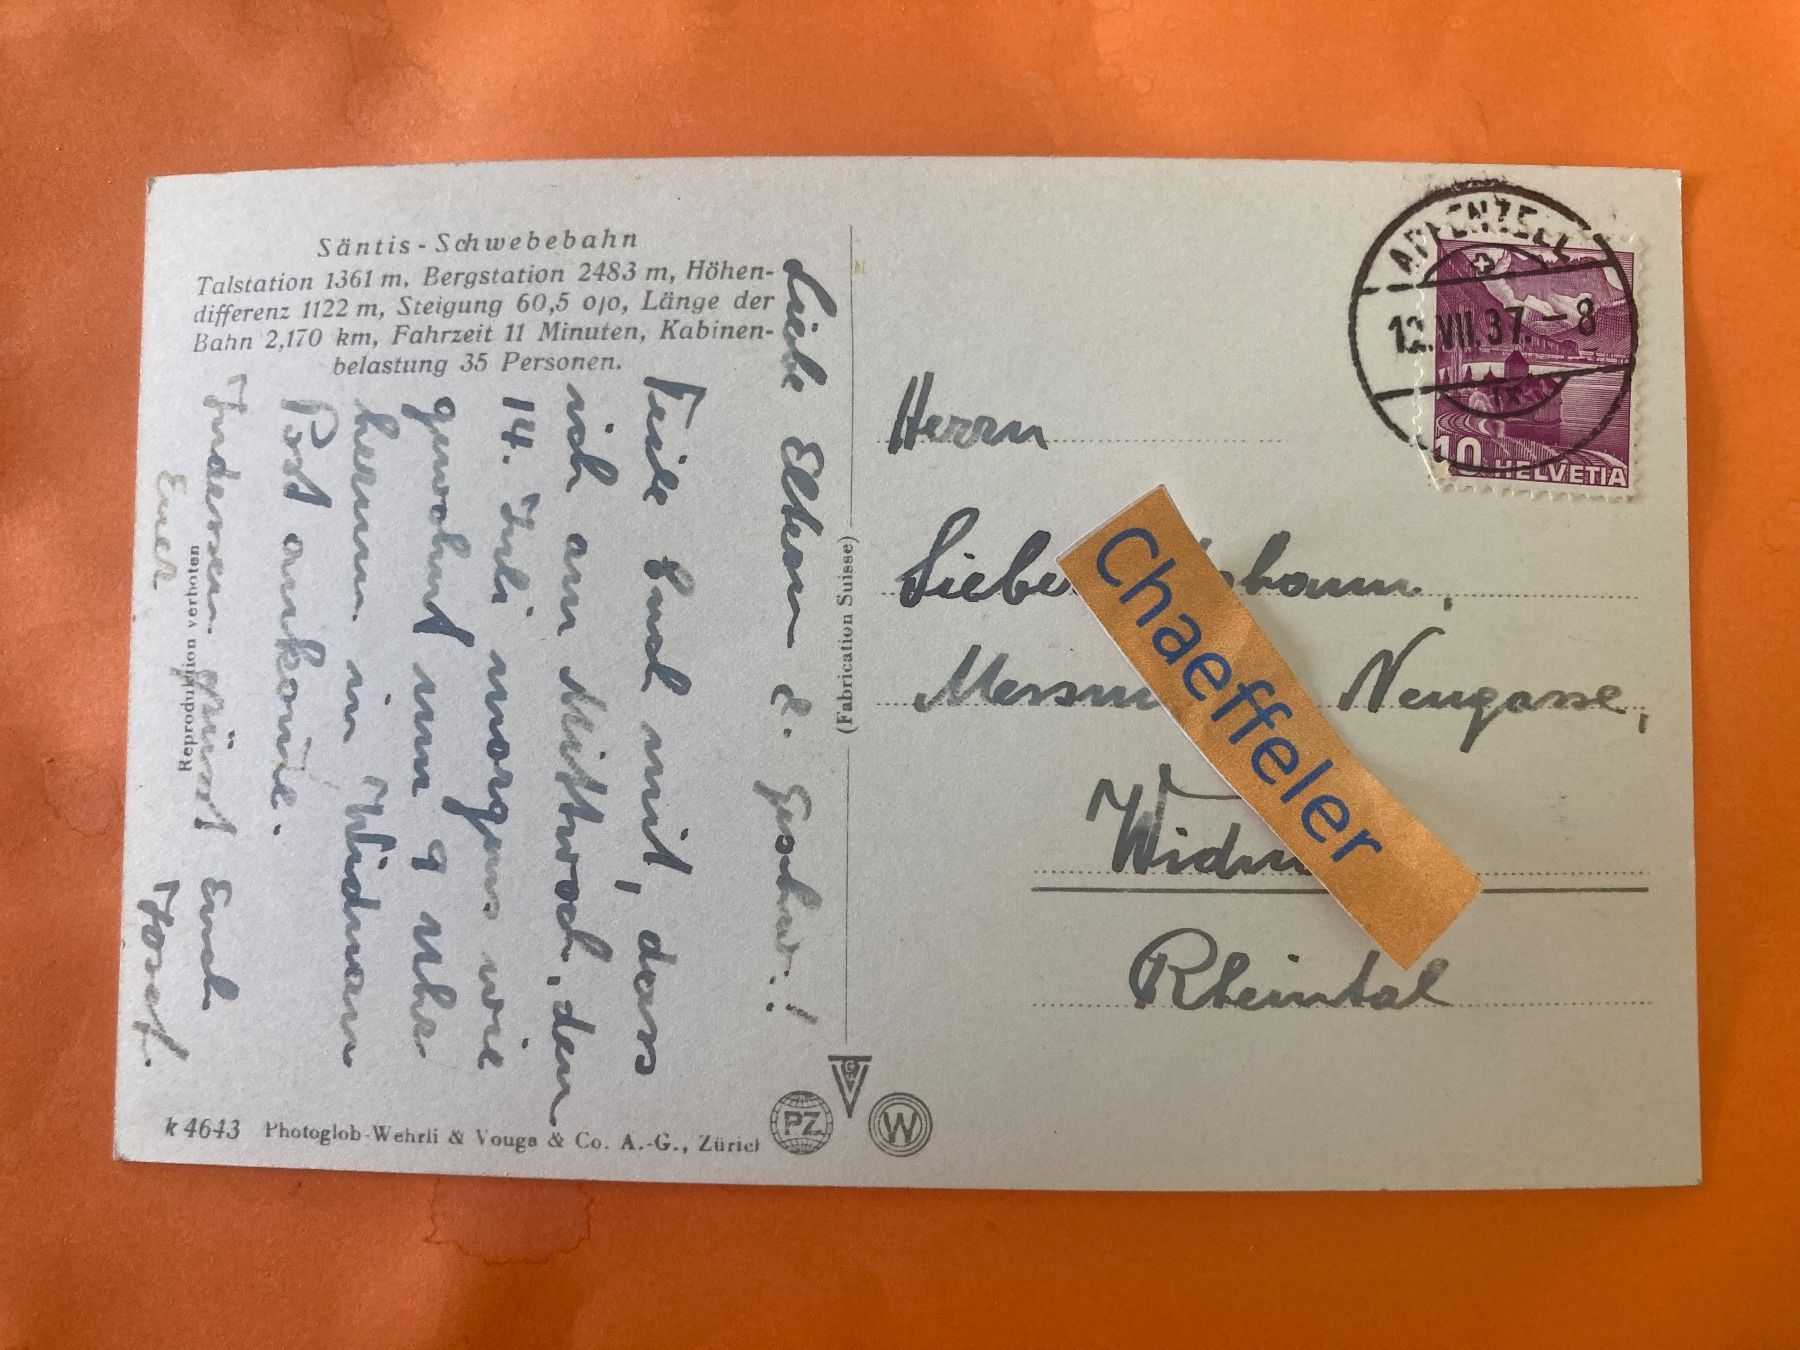 Säntis-Schwebebahn
Talstation 1361 m, Bergstation 2483 m, Höhen-
differenz 1122 m, Steigung 60,5 o/o, Länge der
Bahn 2,170 km, Fahrzeit 11 Minuten, Kabinen-
belastung 35 Personen.
Liebe Eltern & Geschw.!
Teile Euch mit, dass
ich am Mittwoch, den
14. Juli morgens wie
gewohnt um 9 Uhr
herum in Widnau
Post ankome.
Indessen grüsst Euch
Euer Josef.
Reproduktion verboten
(Fabrication Suisse)
k 4643 Photoglob-Wehrli & Vouga & Co. A.-G., Zürich
PZ
G
W
APPENZELL
12.VII.37.-8
IX
10 HELVETIA
Herrn
Neugasse,
Rheintal
Chaeffeler